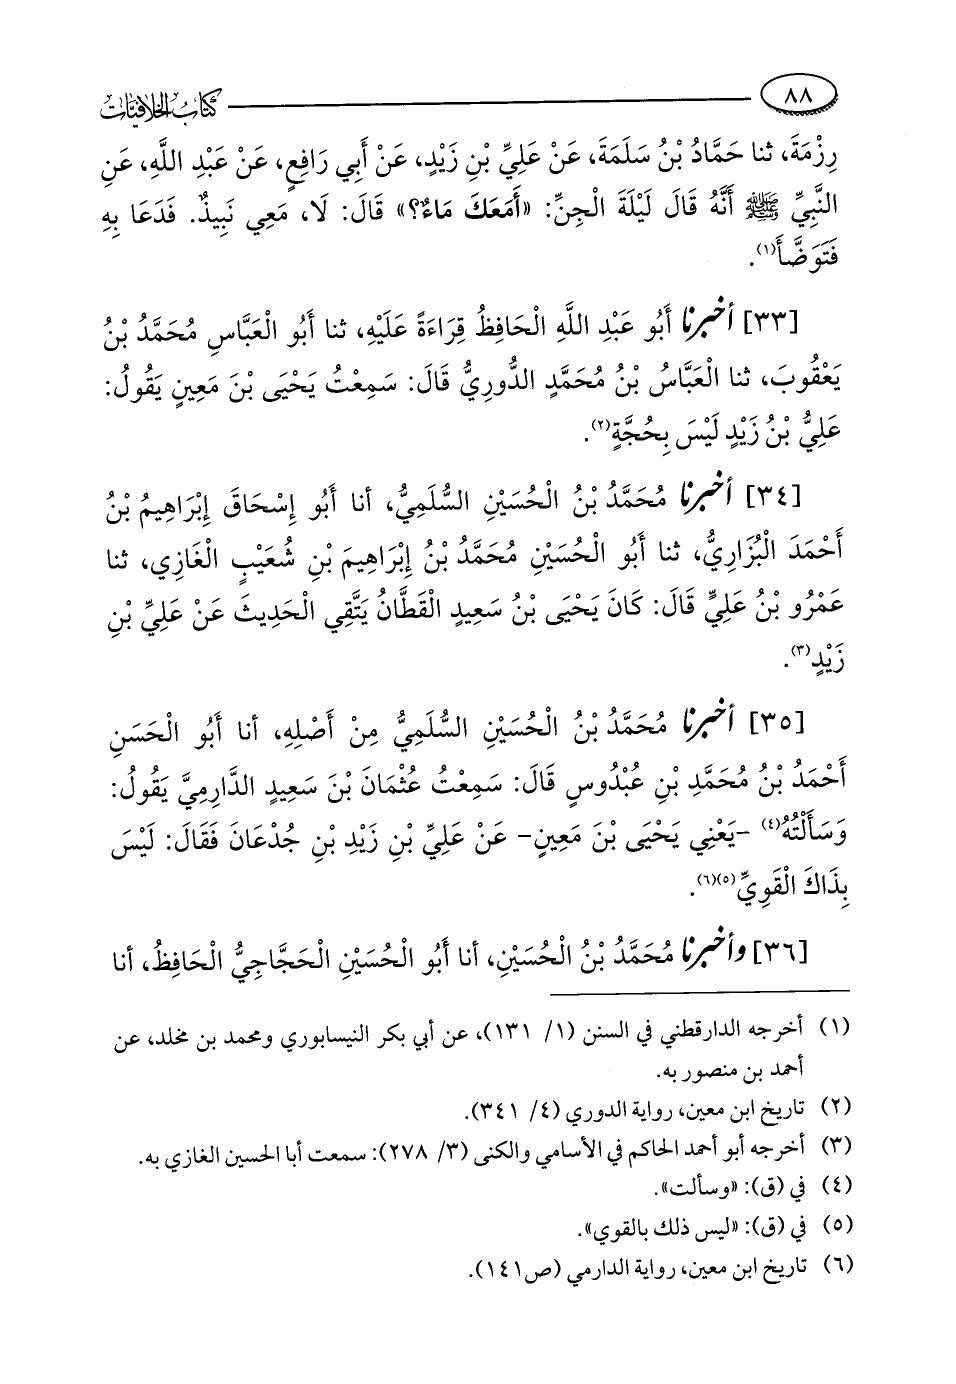 ٨٨
كتاب الخلافيات
رِزْمَةَ، ثنا حَمَّادُ بْنُ سَلَمَةَ، عَنْ عَلِيِّ بْنِ زَيْدٍ، عَنْ أَبِي رَافِعٍ، عَنْ عَبْدِ اللهِ، عَنِ
النَّبِيِّ ﷺ أَنَّهُ قَالَ لَيْلَةَ الْجِنِّ: «أَمَعَكَ مَاءٌ؟» قَالَ: لَا، مَعِي نَبِيذٌ. فَدَعَا بِهِ
فَتَوَضَّأَ(١).
[٣٣] أخبرنا أَبُو عَبْدِ اللَّهِ الْحَافِظُ قِرَاءَةً عَلَيْهِ، ثنا أَبُو الْعَبَّاسِ مُحَمَّدُ بْنُ
يَعْقُوبَ، ثنا الْعَبَّاسُ بْنُ مُحَمَّدٍ الدُّورِيُّ قَالَ: سَمِعْتُ يَحْيَى بْنَ مَعِينٍ يَقُولُ:
عَلِيُّ بْنُ زَيْدٍ لَيْسَ بِحُجَّةٍ(٢).
[٣٤] أخبرنا مُحَمَّدُ بْنُ الْحُسَيْنِ السُّلَمِيُّ، أنا أَبُو إِسْحَاقَ إِبْرَاهِيمُ بْنُ
أَحْمَدَ الْبُزَارِيُّ، ثنا أَبُو الْحُسَيْنِ مُحَمَّدُ بْنُ إِبْرَاهِيمَ بْنِ شُعَيْبٍ الْغَازِي، ثنا
عَمْرُو بْنُ عَلِيٍّ قَالَ: كَانَ يَحْيَى بْنُ سَعِيدٍ الْقَطَّانُ يَتَّقِي الْحَدِيثَ عَنْ عَلِيِّ بْنِ
زَيْدٍ(٣).
[٣٥] أخبرنا مُحَمَّدُ بْنُ الْحُسَيْنِ السُّلَمِيُّ مِنْ أَصْلِهِ، أنا أَبُو الْحَسَنِ
أَحْمَدُ بْنُ مُحَمَّدِ بْنِ عُبْدُوسٍ قَالَ: سَمِعْتُ عُثْمَانَ بْنَ سَعِيدٍ الدَّارِمِيَّ يَقُولُ:
وَسَأَلْتُهُ(٤) -يَعْنِي يَحْيَى بْنَ مَعِينٍ- عَنْ عَلِيِّ بْنِ زَيْدِ بْنِ جُدْعَانَ فَقَالَ: لَيْسَ
بِذَاكَ الْقَوِيِّ(٥)(٦).
[٣٦] وأخبرنا مُحَمَّدُ بْنُ الْحُسَيْنِ، أنا أَبُو الْحُسَيْنِ الْحَجَّاجِيُّ الْحَافِظُ، أنا
(١) أخرجه الدارقطني في السنن (١/ ١٣١)، عن أبي بكر النيسابوري ومحمد بن مخلد، عن
أحمد بن منصور به.
(٢) تاريخ ابن معين، رواية الدوري (٤/ ٣٤١).
(٣) أخرجه أبو أحمد الحاكم في الأسامي والكنى (٣/ ٢٧٨): سمعت أبا الحسين الغازي به.
(٤) في (ق): «وسألت».
(٥) في (ق): «ليس ذلك بالقوي».
(٦) تاريخ ابن معين، رواية الدارمي (ص١٤١).